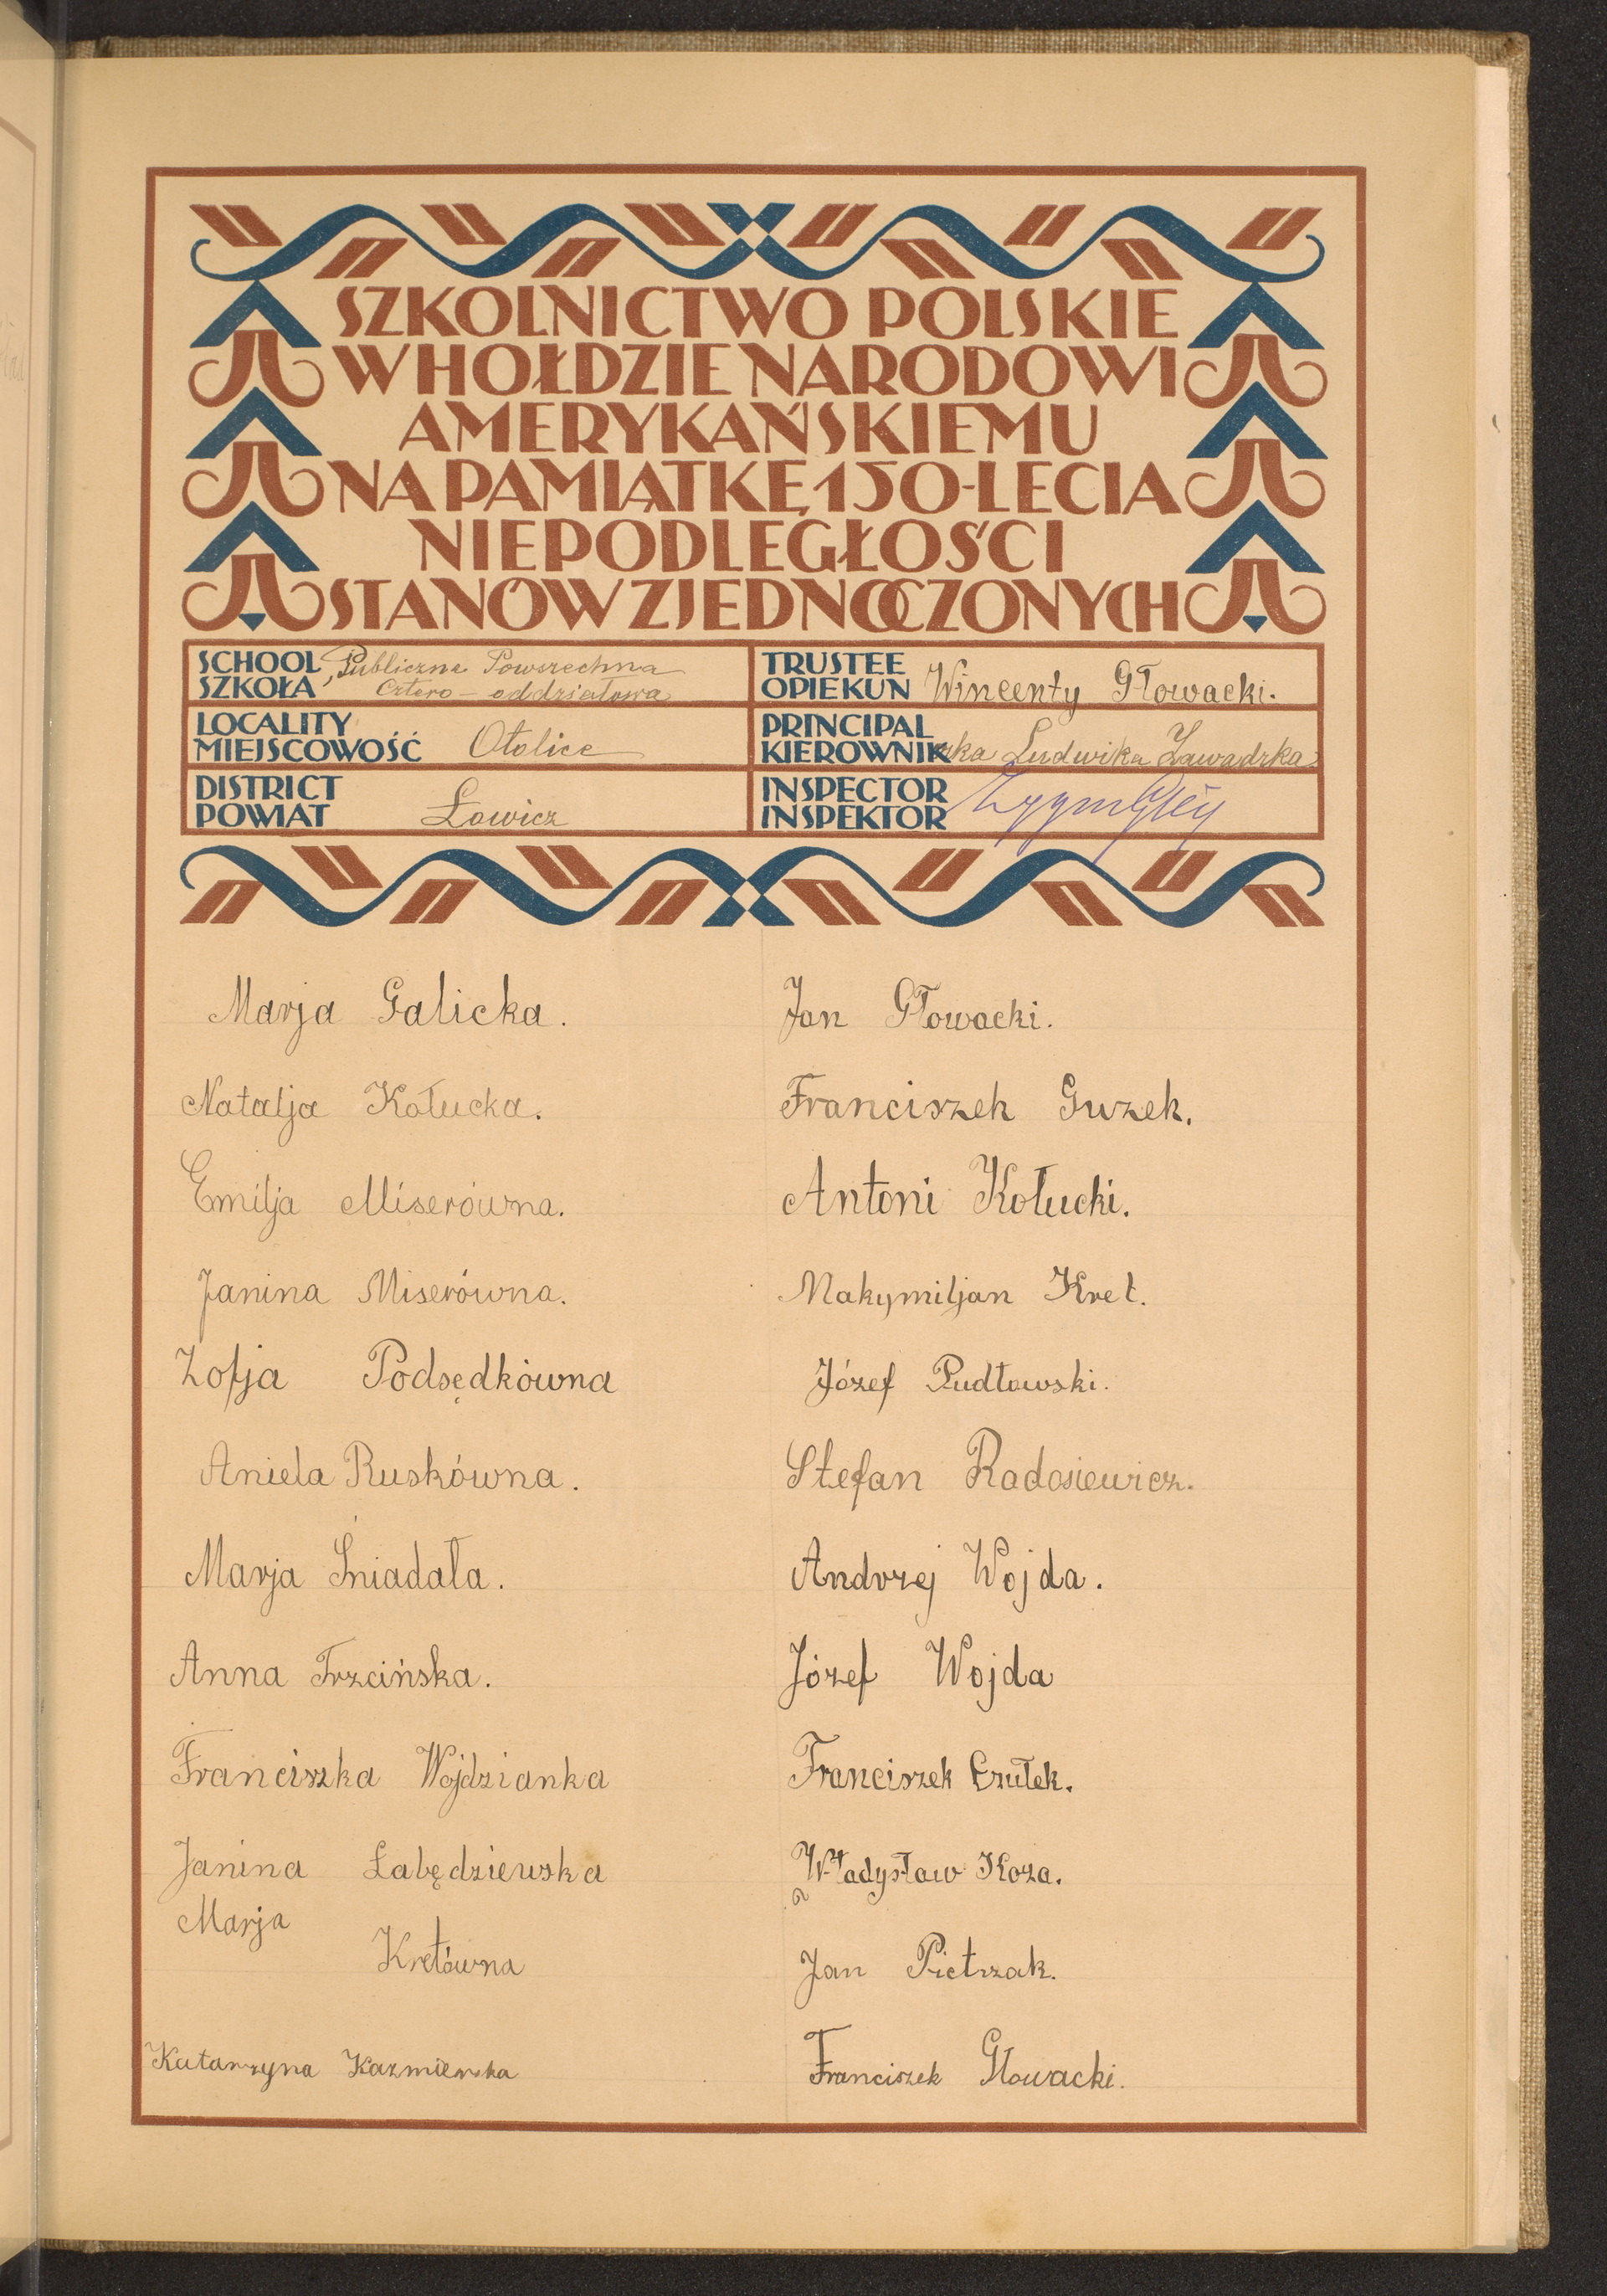 SZKOLNICTWO POLSKIE
W HOŁDZIE NARODOWI
AMERYKAŃSKIEMU
NA PAMIĄTKĘ 150-LECIA
NIEPODLEGŁOŚCI
STANÓW ZJEDNOCZONYCH
SCHOOL
SZKOŁA
Publiczna Powszechna
cztero-oddziałowa
TRUSTEE
OPIEKUN Wincenty Głowacki.
LOCALITY
MIEJSCOWOŚĆ Otolice
PRINCIPAL
KIEROWNIKczka Ludwika Zawadzka
DISTRICT
POWIAT Łowicz
INSPECTOR
INSPEKTOR
Marja Galicka.
Natalja Kołucka.
Emilja Miserówna.
Janina Miserówna.
Zofja Podsędkówna
Aniela Ruskówna.
Marja Śniadała.
Anna Trzcińska.
Franciszka Wojdzianka
Janina Łabędziewska
Marja Kretówna
Katarzyna Kazmierska
Jan Głowacki.
Franciszek Guzek.
Antoni Kołucki.
Makymiljan Kret.
Józef Pudłowski.
Stefan Radosiewicz.
Andrzej Wojda.
Józef Wojda
Franciszek Czułek.
Władysław Koza.
Jan Pietrzak.
Franciszek Głowacki.